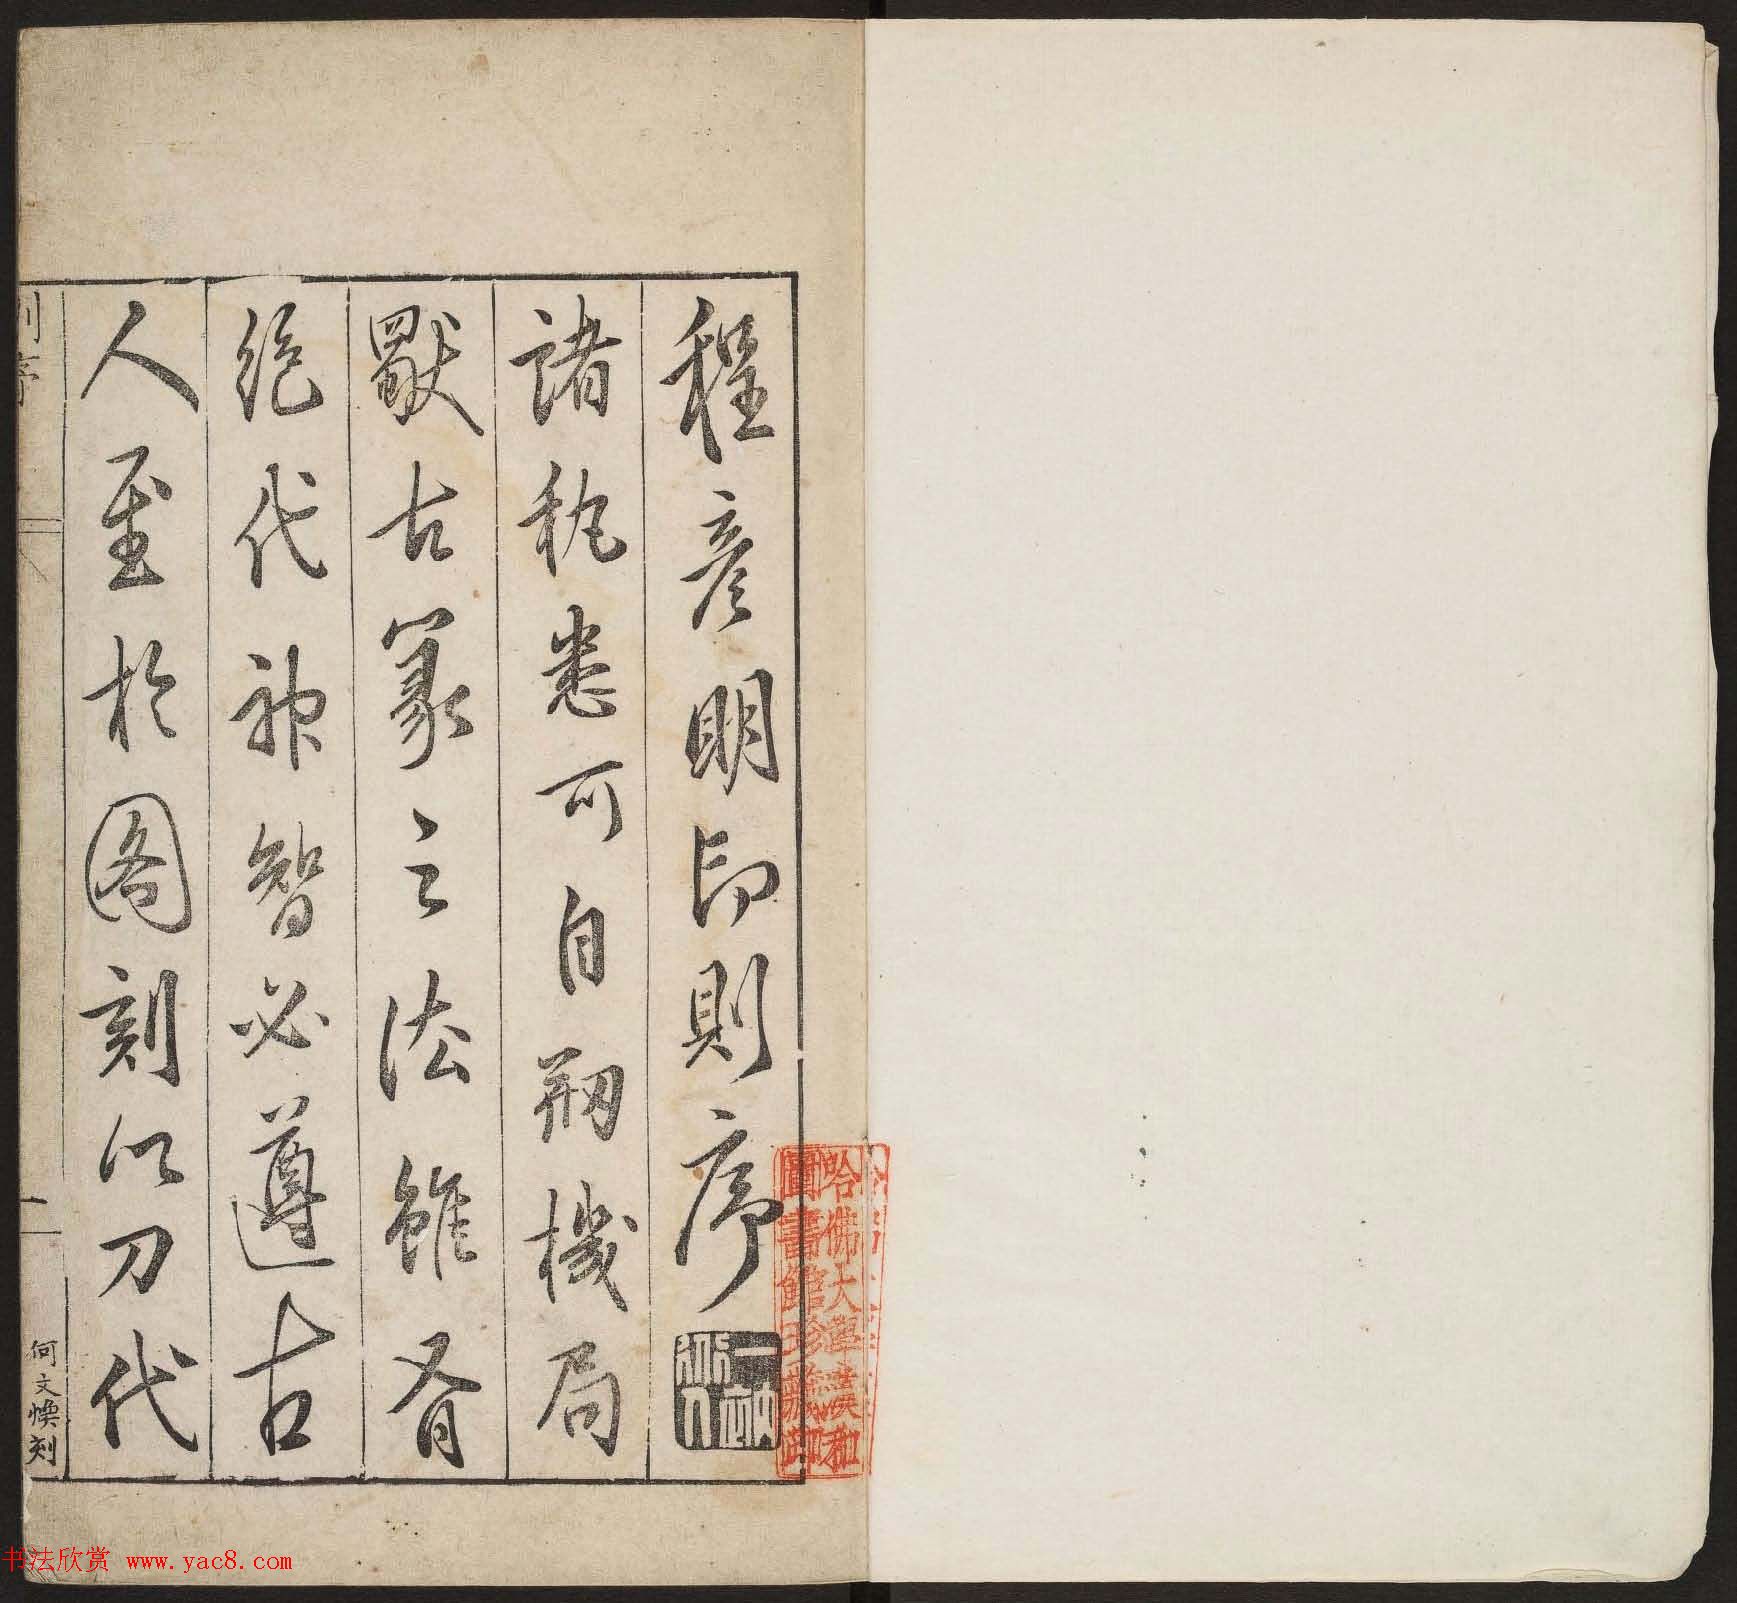 程彥明印則序
諸秇悉可自剏機局
獨古篆之法雖有
絕代神智必遵古
人至於圖刻以刀代
則序
何文煥刻
哈佛大學漢和
圖書館珍藏印
书法欣赏 www.yac8.com